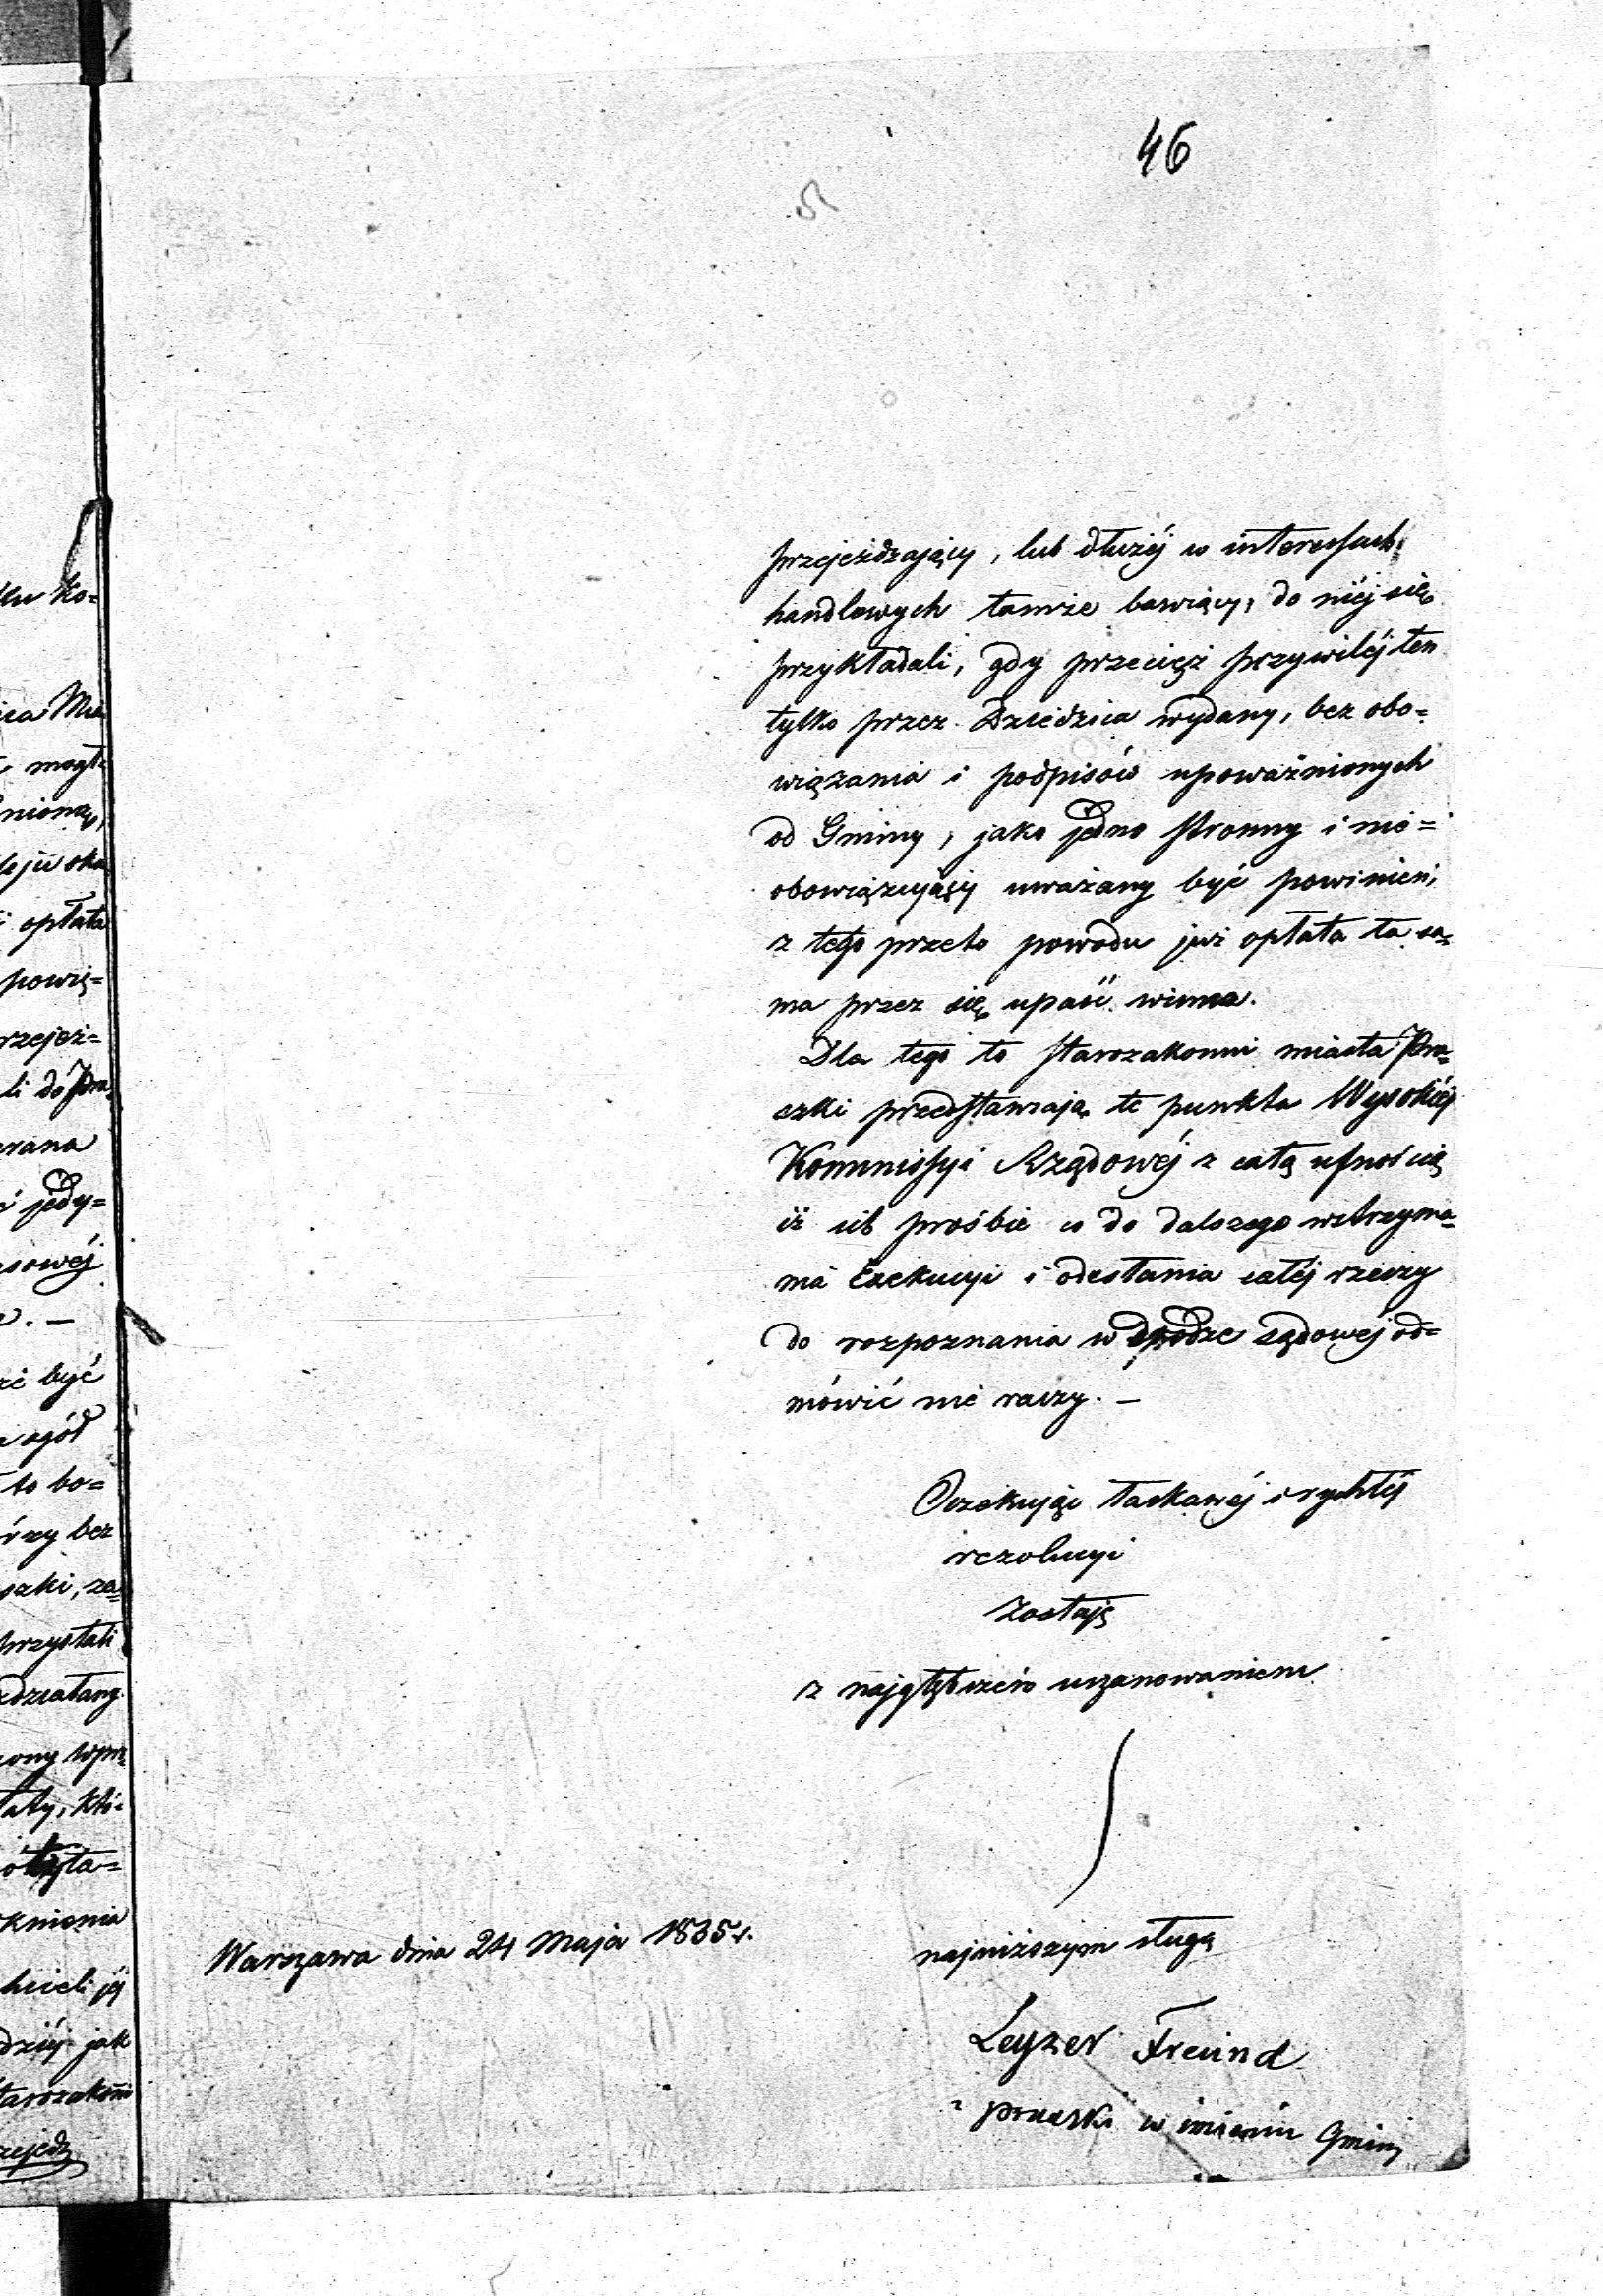 46
przejeżdzający, lub dłużéj w interessach
handlowych tamże bawiący, do niéj się
przykładali, gdy przecięż przywiléj ten
tylko przez Dziedzica wydany, bez obo=
wiązania i podpisów upoważnionych
od Gminy, jako jedno stronny i nie=
obowiązujący uważany być powinien,
z tego przeto powodu już opłata ta sa=
ma przez się upaść winna.
Dla tego to starozakonni miasta Pra=
szki przedstawiają te punkta Wysokiéj
Kommissyi Rządowéj z całą ufnością
iż ich prośbie co do dalszego wstrzyma=
nia Exekucyi i odesłania całéj rzeczy
do rozpoznania w drodze sądowéj od=
mówić nie raczy. —
Oczekując łaskawéj i rychłéj
rezolucyi
Zostaję
z najgłębszém uszanowaniem
Warszawa dnia 24 Maja 1835 r.
najniższym sługą
Leyzer Freund
z Praszki w imieniu Gminy
ko=
opłata
powię=
rzejeż=
li do Pra=
jedy=
sowéj
być
ogół
to bo=
rzy bez
szki, za=
przystali
działany
któ=
knienia
jak
starozakoni